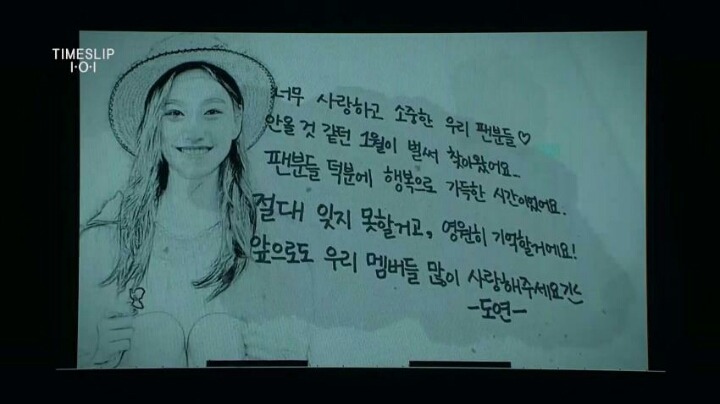 TIMESLIP
I·O·I
너무 사랑하고 소중한 우리 팬분들♡
안올 것 같던 1월이 벌써 찾아왔어요..
팬분들 덕분에 행복으로 가득한 시간이었어요.
절대 잊지 못할거고, 영원히 기억할거에요!
앞으로도 우리 멤버들 많이 사랑해주세요
-도연-